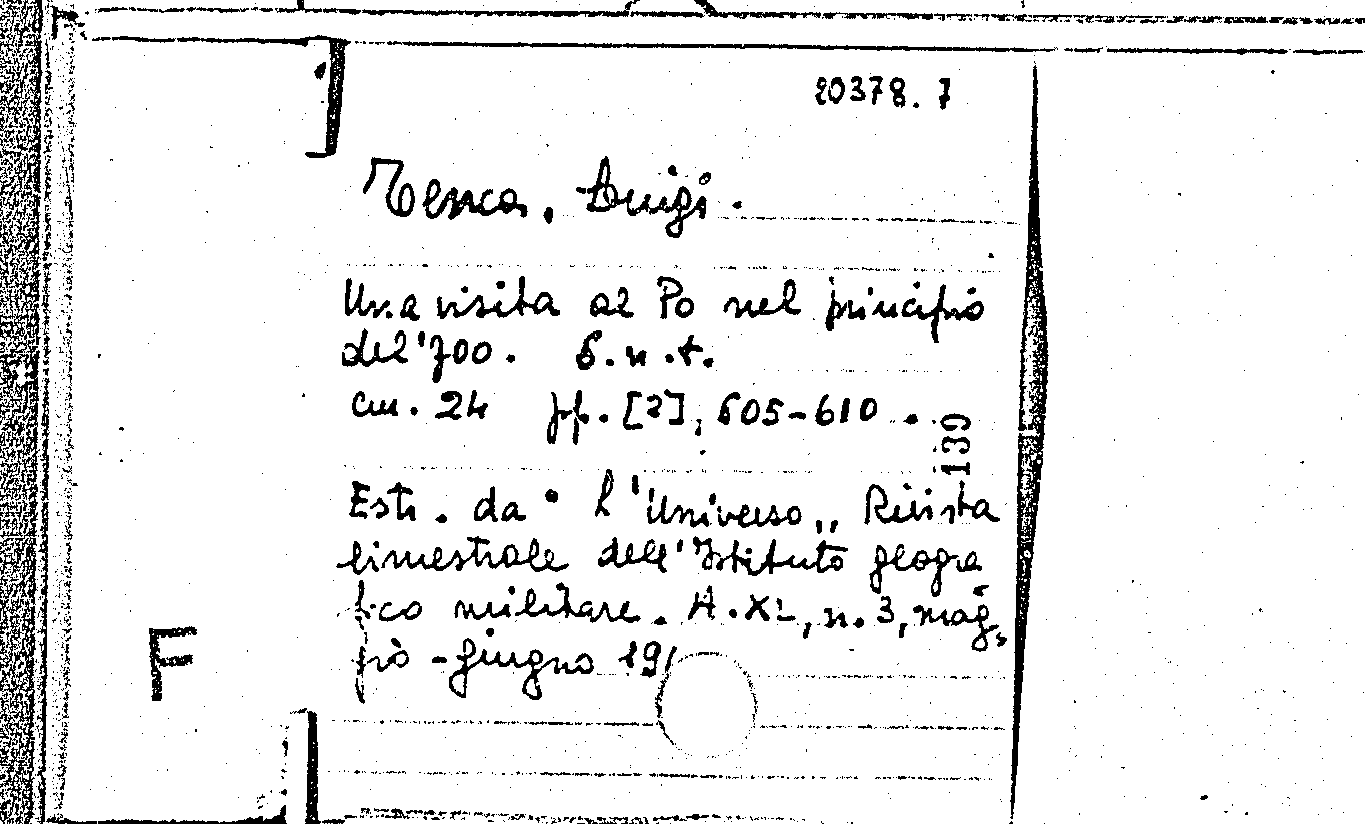 20378.7
Tenca, Luigi.
Una visita al Po nel principio
del '700. S.n.t.
cm. 24 pp. [2], 605-610.
139
Estr. da "L'Universo,, Rivista
bimestrale dell'Istituto geogra
fico militare. A.XL, n.3, mag,
gio-giugno 19
F